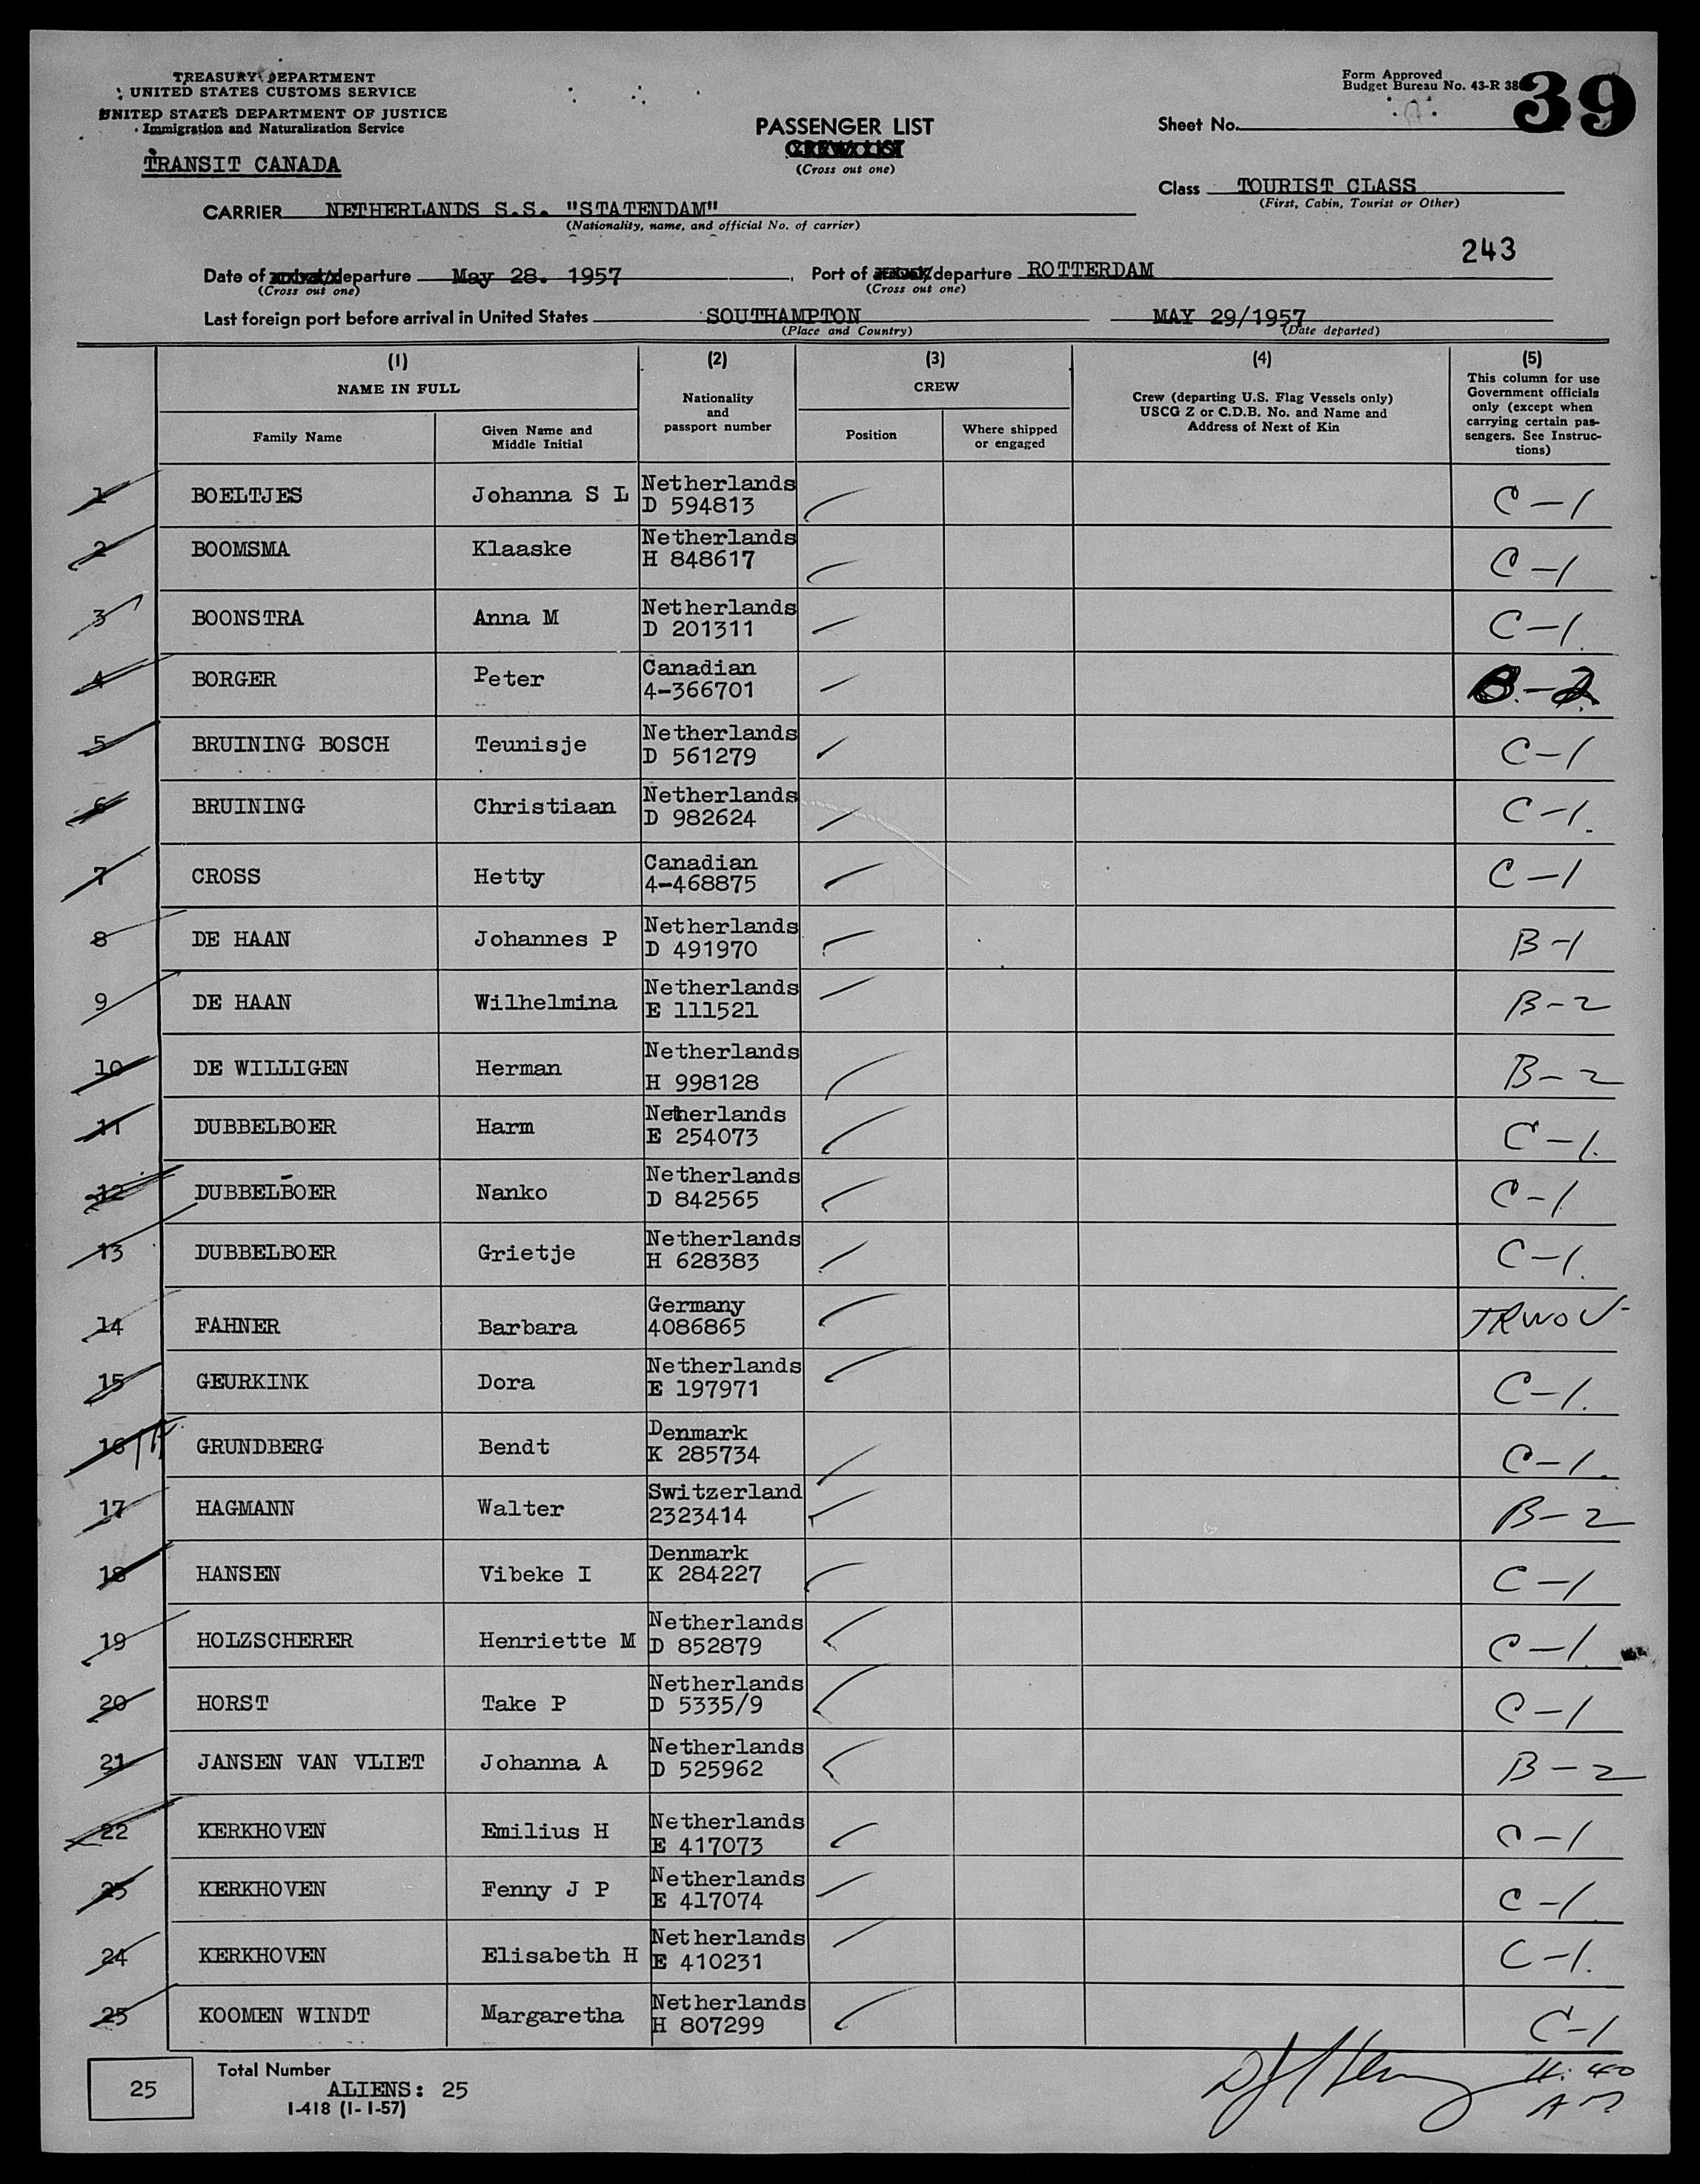 TREASURY DEPARTMENT
UNITED STATES CUSTOMS SERVICE
UNITED STATES DEPARTMENT OF JUSTICE
Immigration and Naturalization Service
TRANSIT CANADA
Form Approved
Budget Bureau No. 43-R 38
39
PASSENGER LIST
CREW LIST
(Cross out one)
Sheet No.
Class TOURIST CLASS
(First, Cabin, Tourist or Other)
CARRIER NETHERLANDS S.S. "STATENDAM"
(Nationality, name, and official No. of carrier)
243
Date of arrival/departure May 28. 1957 Port of arrival/departure ROTTERDAM
(Cross out one) (Cross out one)
Last foreign port before arrival in United States SOUTHAMPTON MAY 29/1957
(Place and Country) (Date departed)
(1) (2) (3) (4) (5)
NAME IN FULL
Family Name
Given Name and
Middle Initial
Nationality
and
passport number
CREW
Position
Where shipped
or engaged
Crew (departing U.S. Flag Vessels only)
USCG Z or C.D.B. No. and Name and
Address of Next of Kin
This column for use
Government officials
only (except when
carrying certain pas-
sengers. See Instruc-
tions)
1 BOELTJES Johanna S L Netherlands D 594813 C-1
2 BOOMSMA Klaaske Netherlands H 848617 C-1
3 BOONSTRA Anna M Netherlands D 201311 C-1
4 BORGER Peter Canadian 4-366701 B-2
5 BRUINING BOSCH Teunisje Netherlands D 561279 C-1
6 BRUINING Christiaan Netherlands D 982624 C-1
7 CROSS Hetty Canadian 4-468875 C-1
8 DE HAAN Johannes P Netherlands D 491970 B-1
9 DE HAAN Wilhelmina Netherlands E 111521 B-2
10 DE WILLIGEN Herman Netherlands H 998128 B-2
11 DUBBELBOER Harm Netherlands E 254073 C-1
12 DUBBELBOER Nanko Netherlands D 842565 C-1
13 DUBBELBOER Grietje Netherlands H 628383 C-1
14 FAHNER Barbara Germany 4086865 TRWOV
15 GEURKINK Dora Netherlands E 197971 C-1
16 GRUNDBERG Bendt Denmark K 285734 C-1
17 HAGMANN Walter Switzerland 2323414 B-2
18 HANSEN Vibeke I Denmark K 284227 C-1
19 HOLZSCHERER Henriette M Netherlands D 852879 C-1
20 HORST Take P Netherlands D 5335/9 C-1
21 JANSEN VAN VLIET Johanna A Netherlands D 525962 B-2
22 KERKHOVEN Emilius H Netherlands E 417073 C-1
23 KERKHOVEN Fenny J P Netherlands E 417074 C-1
24 KERKHOVEN Elisabeth H Netherlands E 410231 C-1
25 KOOMEN WINDT Margaretha Netherlands H 807299 C-1
25 Total Number
ALIENS: 25
I-418 (1-1-57)
11:40
AM